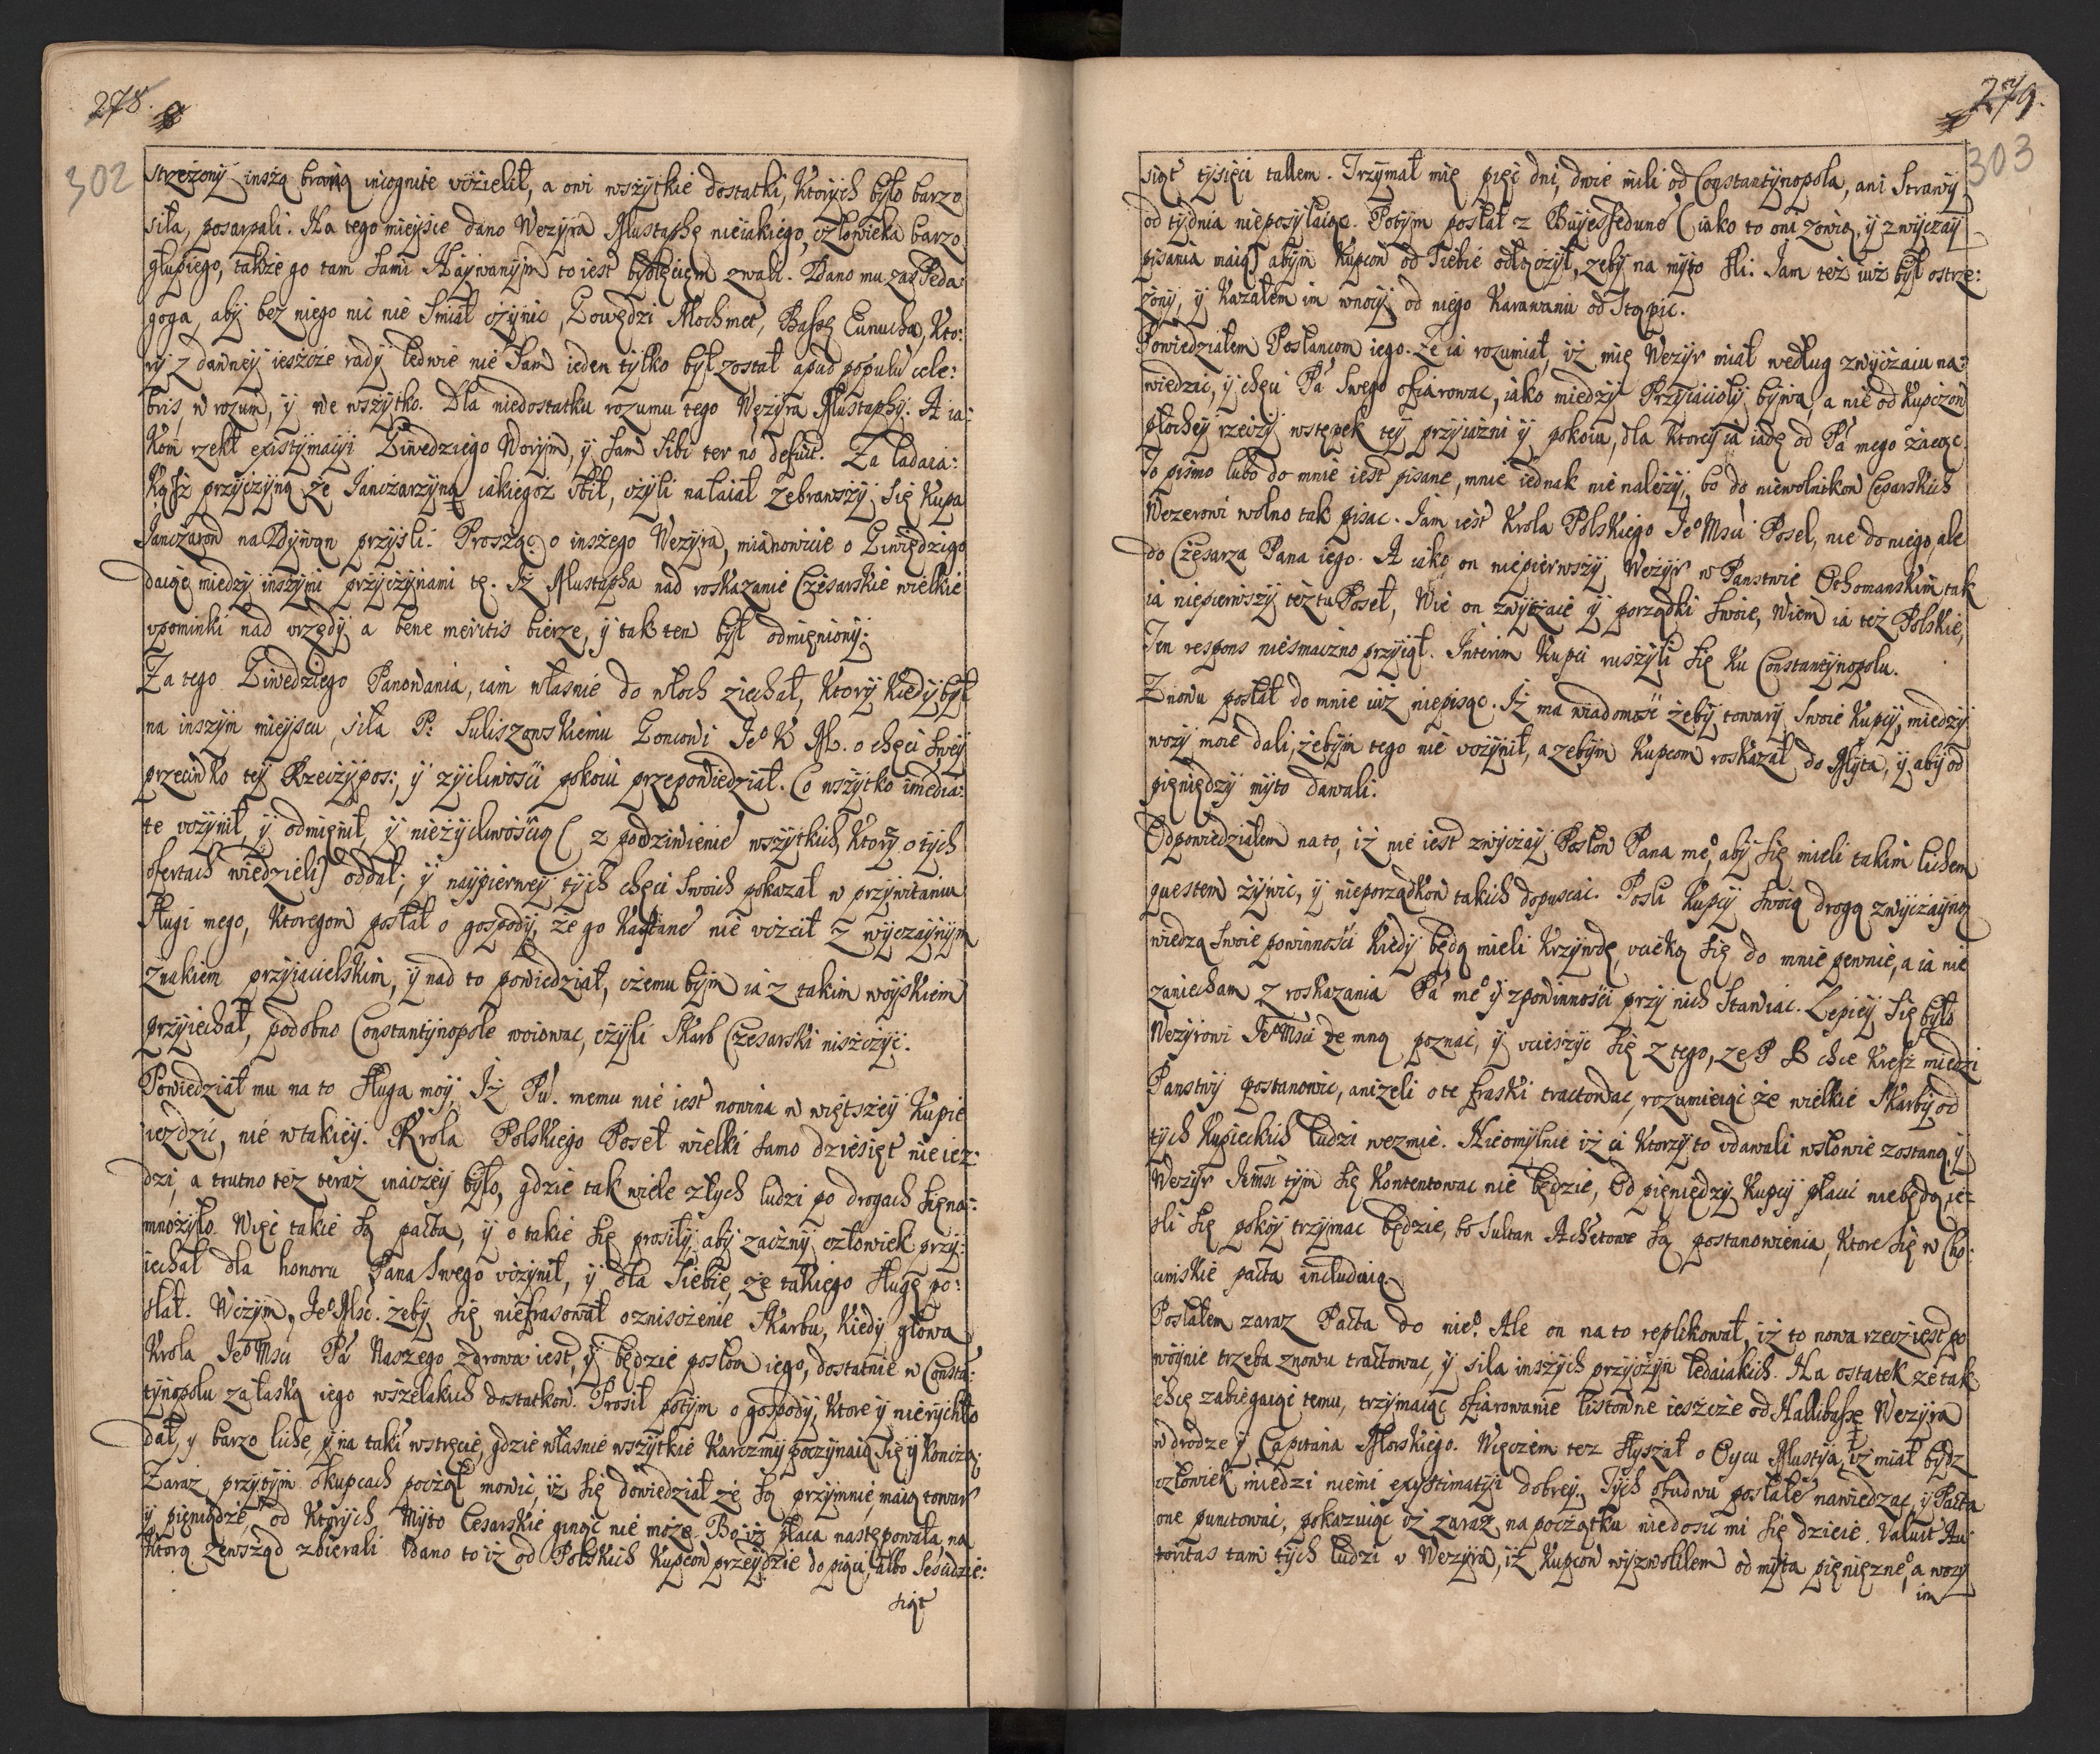 278.
302
strzeżony inszą broną incognite vszielił, a oni wszytkie dostatki, których było barzo
siła, posarpali. Na tego mieysce dano Wezyra Mustaphę nieiakiego, człowieka barzo
głupiego, takze go tam sami Haywanym to iest bydlęciem zwali. Dano mu zaś Peda
goga, aby bez niego nic nie smiał czynic, Mochmet, Bassę Eunucha, Kto:
ry z dawney ieszcze rady ledwie nie sam ieden tylko był został apud populũ cele:
bris, w rozum, y we wszytko. Dla niedostatku rozumu tego Wezyra Mustaphy. A ia:
Kom rzekł existymacyi worym, y sam sibi defuit. Za ladaia:
Kąsz przyczyną ze Janczarzyna iakiegoż vbił, czyli nałaiał zebrawszy się Kupa
Janczarow na Dywan przyśli. Prosząc o inszego Wezyra, mianowicie o
daiąc miedzy inszymi przyczynami tę. Iż Mustapha nad roskazanie Czesarskie wielkie
vpominki nad vrzędy a bene meritis bierze, y tak ten był odmieniony.
Za tego Panowania, iam własnie do włoch ziechał, Ktory kiedy był
na inszym mieyscu, siła P. Suliszowskiemu Goncowi Ieº K M. o chęci swey
przeciwko tey Rzeczypos:, y zyczliwości pokoiu przepowiedział. Co wszytko imedia:
te vczynił, y odmienił, y nieżyczliwością (z podziwienie wszytkich, Ktorzy o tych
ofertach wiedzieli) oddał; y naypierwey tych chęci swoich pokazał w przywitaniu
sługi mego, Ktoregom posłał o gospody, że go Kaftane nie vczcił zwyczaynym
znakiem przyiacielskim, y nad to powiedział, czemu bym ia z takim woyskiem
przyiechał, podobno Constantynopole woiowac, czyli Skarb Czesarski niszczyć.
Powiedział mu na to sługa moy, Iż Pũ. memu nie iest nowina w więtszey Kupie
iezdzic, nie w takiey. Krola Polskiego Poseł wielki samo dziesięt nie iez:
dzi, a trutno też teraz inaczey było, gdzie tak wiele złych ludzi po drogach się na:
mnożyło. Więc takie są pacta, y o takie się prosiły, aby zacny człowiek przy:
iechał dla honoru Pana swego vczynił, y dla siebie, że takiego sługę po:
słał. Wczym, Ieº Msć. żeby się niefrasował o zniszczenie Skarbu, Kiedy głowa
Krola Ieº Msci Pã Naszego zdrowa iest, y będzie posłow iego, dostatnie w Constã:
tynopolu za łaską iego wszelakich dostatkow. Prosił potym o gospody, Ktore y nierychło
dał, y barzo liche, y na taki wstręcie, gdzie własnie wszytkie Karczmy poczynaią się y Koncza;
Zaraz przytym o kupcach począł mowic, iż się dowiedział że są przymnie, maią towar
y pieniądze, od Ktorych Myto Cesarskie ginąć nie może. Bo iż płaca następowała na
Ktorą zewsząd zbierali vdano to iż od Polskich Kupcow przeydzie do piąciu, albo sesudzie:
siąt
279.
303
siąt tysięci tallem. Trzymał mię pięć dni, dwie mili od Constantynopola, ani strawy
od tydnia nieposyłaiąc. Potym posłał z (iako to oni zowią, y zwyczay
pisania maią) abym Kupcow od siebie odłączył, zeby na myto śli. Iam też iuż był ostrze:
żony, y Kazałem im wnocy od niego Karawaniu odstąpic.
Powiedziałem Posłancom iego. Ze ia rozumiał, iż mię Wezyr miał według zwyczaiu na:
wiedzac, y chęci Pã swego ofiarowac, iako miedzy Przyiacioły bywa, a nie od kupczow
płochey rzeczy wstępek tey przyiazni y pokoiu, dla Ktorey ia iadę od Pã mego zacząc.
To pismo lubo do mnie iest pisane, mnie iednak nie nalezy, bo do niewolnikow Cesarskich
Wezerowi wolno tak pisac. Iam iest Krola Polskiego Ieº Msci Poseł, nie do niego, ale
do Czesarza Pana iego. A iako on niepierwszy Wezyr w Panstwie Othomanskim tak
ia niepierwszy też tu Poseł, Wie on zwyczaie y porządki swoie, Wiem ia też Polskie,
Ten respons niesmaczno przyiął. Interim Kupci ruszyli się Ku Constantynopolu.
Znowu posłał do mnie iuż niepisąc. Iż ma wiadomość żeby towary swoie Kupcy, miedzy
wozy moie dali, żebym tego nie vczynił, a zebym Kupcom roskazał do Myta, y aby od
pieniędzy myto dawali.
Odpowiedziałem na to, iż nie iest zwyczay Posłow Pana meº aby się mieli takim lichem
questem żywic, y nieporządkow takich dopuscac. Posli Kupcy swoią drogą zwyczayną
wiedzą swoie powinności kiedy będą mieli Krzywdę, vcieką się do mnie pewnie, a ia nie
zaniecham z roskazania Pã meº y zpowinności przy nich stawiac. Lepiey się było
Wezyrowi Ieº Msci ze mną poznać, y vcieszyc się z tego, ze P B chce Kresz miedzi
Panstwy postanowic, anizeli o te fraski tractowac, rozumieiąc że wielkie Skarby od
tych Kupieckich ludzi wezmie. Nieomylnie iż ci Ktorzy to vdawali wsłowie zostaną, y
Wezyr Iemsc tym się Kontentowac nie będzie, Od pieniędzy Kupcy płacic niebędą, ie:
sli się pokoy trzymac będzie, bo Sultan Achetowe są postanowienia, Ktore się w Cho:
cimskie pacta includuią.
Posłałem zaraz Pacta do nieº. Ale on na to replikował, iż to nowa rzecz iest po
woynie trzeba znowu tractowac, y siła inszych przyczyn ledaiakich. Na ostatek że tak
chcę zabiegaiąc temu, trzymaiąc ofiarowanie listowne ieszcze od Halibassę Wezyra
w drodze y Capitana Morskiego. Więczem tez słyszał o Oycu Mustya, iż miał bydz
człowiek miedzi niemi existimatiyi dobrey. Tych obudwu posłałe nawiedzac, y Pacta
one punctowac, pokazuiąc iż zaraz na początku niedosic mi się dzieie. Valuit Au
toritas tam tych ludzi v Wezyra, iż Kupcow wyzwoliłem od myta pieniężneº, a wozy
im